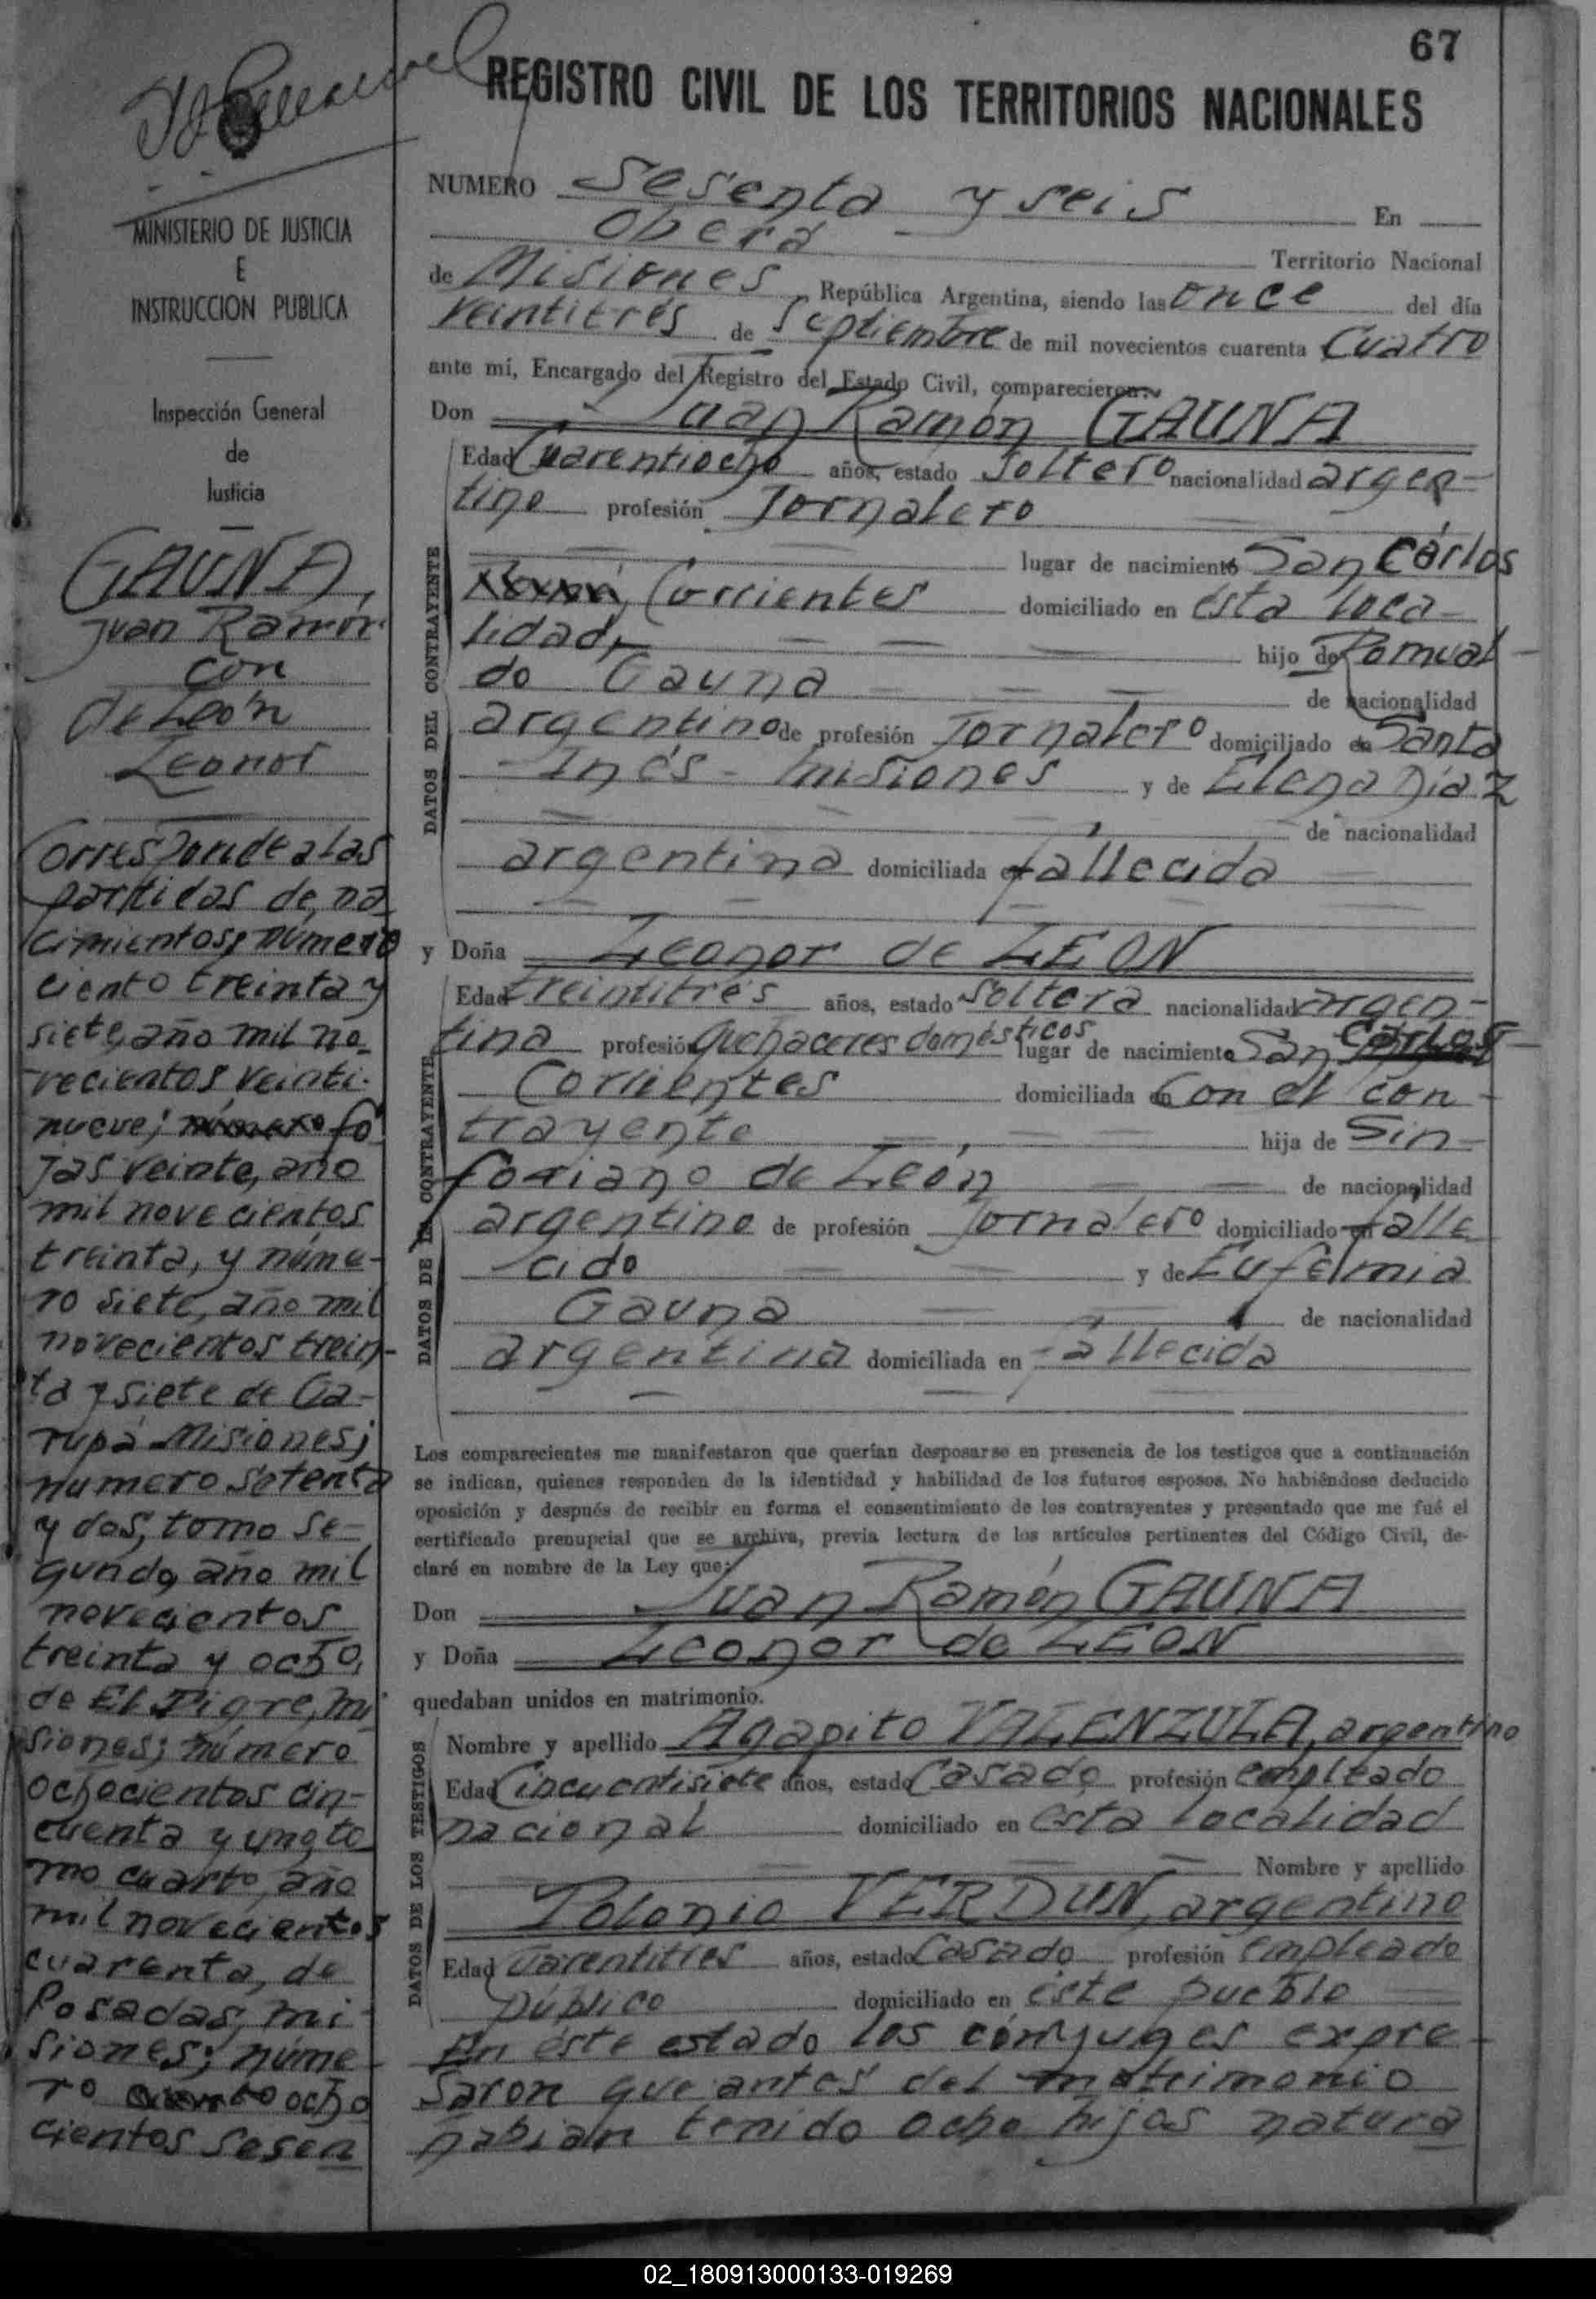 67
REGISTRO CIVIL DE LOS TERRITORIOS NACIONALES
MINISTERIO DE JUSTICIA
E
INSTRUCCION PUBLICA
Inspección General
de
Justicia
GAUNA,
Juan Ramón
con
de León
Leonor
Corresponde a las
partidas de na
cimientos, número
ciento treinta y
siete, año mil no-
vecientos veinti-
nueve; fo
jas veinte, año
mil novecientos
treinta, y núme-
ro siete, año mil
novecientos trein-
ta y siete de Ga-
rupá Misiones;
numero setenta
y dos, tomo se-
gundo, año mil
novecientos
treinta y ocho,
de El Tigre, Mi
siones; número
ochocientos cin-
cuenta y uno, to
mo cuarto, año
mil novecientos
cuarenta, de
Posadas, Mi-
siones; núme-
ro ocho
cientos sesen
NUMERO Sesenta y seis En
Oberá Territorio Nacional
de Misiones República Argentina, siendo las once del día
veintitrés de Septiembre de mil novecientos cuarenta cuatro
ante mí, Encargado del Registro del Estado Civil, comparecieron:
Don Juan Ramón GAUNA
DATOS DEL CONTRAYENTE
Edad Cuarentiocho años, estado soltero nacionalidad argen-
tino profesión Jornalero
lugar de nacimiento San Cárlos
Corrientes domiciliado en ésta loca-
lidad, hijo de Romual-
do Gauna de nacionalidad
argentino de profesión Jornalero domiciliado en Santa
Inés - Misiones y de Elena Díaz
de nacionalidad
argentina domiciliada en fallecida
y Doña Leonor de LEON
DATOS DE LA CONTRAYENTE
Edad treintitrés años, estado soltera nacionalidad argen-
tina profesión Quehaceres domésticos lugar de nacimiento San Carlos
Corrientes domiciliada en con el con-
trayente hija de Sin-
foriano de León de nacionalidad
argentino de profesión Jornalero domiciliado en falle
cido y de Eufemia
Gauna de nacionalidad
argentina domiciliada en fallecida
Los comparecientes me manifestaron que querían desposarse en presencia de los testigos que a continuación
se indican, quienes responden de la identidad y habilidad de los futuros esposos. No habiéndose deducido
oposición y después de recibir en forma el consentimiento de los contrayentes y presentado que me fué el
certificado prenupcial que se archiva, previa lectura de los artículos pertinentes del Código Civil, de-
claré en nombre de la Ley que:
Don Juan Ramón GAUNA
y Doña Leonor de LEON
quedaban unidos en matrimonio.
DATOS DE LOS TESTIGOS
Nombre y apellido Agapito VALENZULA, argentino
Edad Cincuentisiete años, estado Casado profesión empleado
nacional domiciliado en esta localidad
Nombre y apellido
Polonio VERDUN, argentino
Edad Cuarentitres años, estado Casado profesión empleado
público domiciliado en éste pueblo
En éste estado los cónyuges expre-
saron que antes del matrimonio
habian tenido ocho hijos natura
02_180913000133-019269